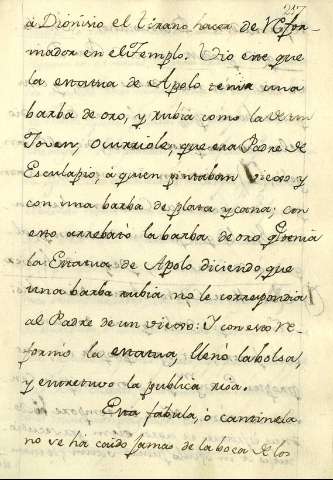 217
à Dionisio el Tirano hacer de Refor-
mador en el Templo. Vio este que
la estatua de Apolo tenia una
barba de oro, y rubia como la de un
Joven, ocurriole, que era Padre de
Esculapio, à quien pintaban viejo y
con una barba de plata y cana; con
esto arrebatò la barba de oro q tenia
la Estatua de Apolo diciendo que
una barba rubia no le correspondia
al Padre de un viejo: I con esto re-
formò la estatua, llenò la bolsa,
y entretuvo la publica risa.
Esta fábula, ò cantinela
no se há caido jamas de la boca de los